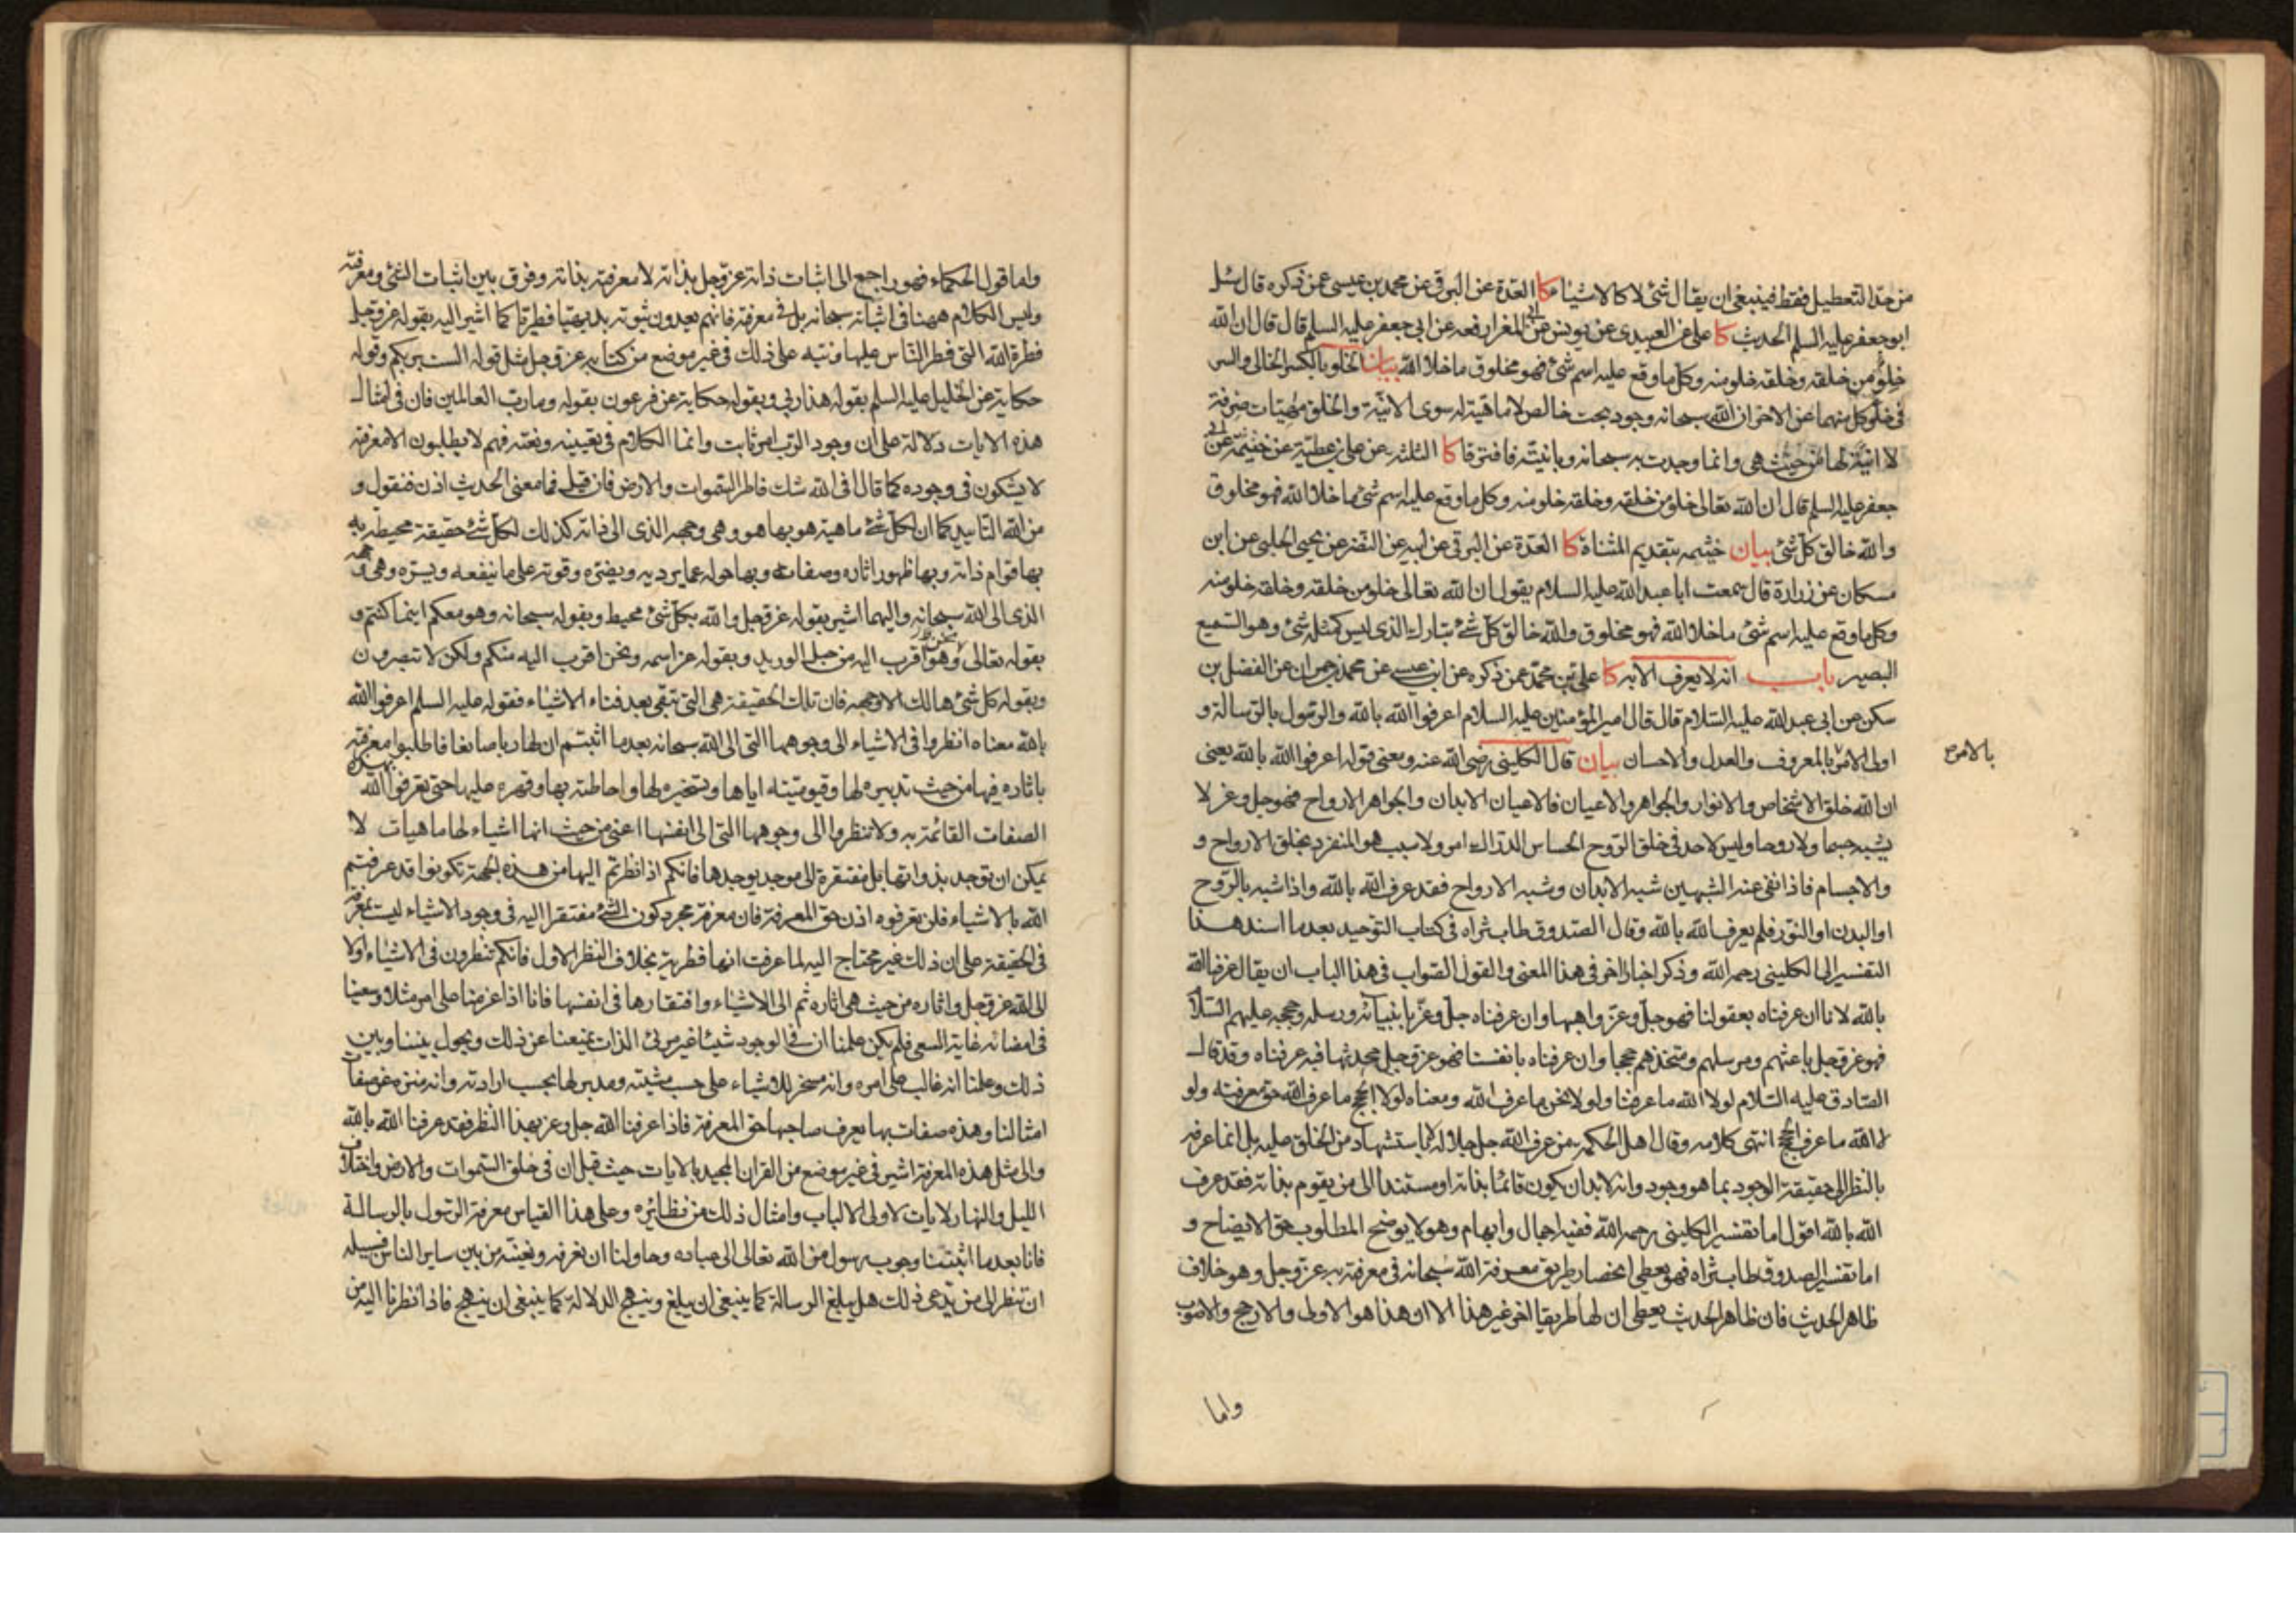 من حد التعطيل فقط فينبغي ان يقال شئ لا كالاشياء كا العدة عن البرقي عن محمد بن عيسى عمن ذكره قال سئل
ابو جعفر عليه السلم الحديث كا علي عن العبيدي عن يونس عن ابي المغرا رفعه عن ابي جعفر عليه السلم قال قال ان الله
خلو من خلقه وخلقه خلو منه وكل ما وقع عليه اسم شئ فهو مخلوق ما خلا الله بيان الخلو بالكسر الخالي والسر
في خلو كل منهما عن الاخر ان الله سبحانه وجود بحت خالص لا ماهية له سوى الانية والخلق مهيات صرفة
لا انية لها من حيث هي وانما وجدت به سبحانه وبانيته فافترقا كا الثلثه عن علي بن عطية عن خيثمة عن ابي
جعفر عليه السلم قال ان الله تعالى خلو من خلقه وخلقه خلو منه وكل ما وقع عليه اسم شئ ما خلا الله فهو مخلوق
والله خالق كل شئ بيان خيثمه بتقديم المثناة كا العدة عن البرقي عن ابيه عن النضر عن يحيى الحلبي عن ابن
مسكان عن زرارة قال سمعت ابا عبد الله عليه السلام يقول ان الله تعالى خلو من خلقه وخلقه خلو منه
وكل ما وقع عليه اسم شئ ما خلا الله فهو مخلوق والله خالق كل شئ تبارك الذي ليس كمثله شئ وهو السميع
البصير باب انه لا يعرف الا به كا علي بن محمد عمن ذكره عن ابن عيسى عن محمد بن حمران عن الفضل بن
سكن عن ابي عبد الله عليه السلام قال قال امير المؤمنين عليه السلام اعرفوا الله بالله والرسول بالرسالة و
اولي الامر بالمعروف والعدل والاحسان بيان قال الكليني رضي الله عنه ومعنى قوله اعرفوا الله بالله يعني
بالامر
ان الله خلق الاشخاص والانوار والجواهر والاعيان فالاعيان الابدان والجواهر الارواح فهو جل وعز لا
يشبه جسما ولا روحا وليس لاحد في خلق الروح الحساس الدراك امر ولا سبب هو المنفرد بخلق الارواح و
والاجسام فاذا نفى عنه الشبهين شبه الابدان وشبه الارواح فقد عرف الله بالله واذا شبه بالروح
او البدن او النور فلم يعرف الله بالله وقال الصدوق طاب ثراه في كتاب التوحيد بعد ما اسند هذا
التفسير الى الكليني رحمه الله وذكر اخبارا اخر في هذا المعنى والقول الصواب في هذا الباب ان يقال عرفنا الله
بالله لانا ان عرفناه بعقولنا فهو جل وعز واهبها وان عرفناه جل وعز بانبيائه ورسله وحججه عليهم السلام
فهو عز وجل باعثهم ومرسلهم ومتخذهم حججا وان عرفناه بانفسنا فهو عز وجل محدثها فبه عرفناه وقد قال
الصادق عليه السلام لولا الله ما عرفنا ولولا نحن ما عرف الله ومعناه لولا الحجج ما عرف الله حق معرفته ولو
لا الله ما عرف الحجج انتهى كلامه وقال اهل الحكمة من عرف الله جل جلاله لا باستشهاد من الخلق عليه بل انما عرفه
بالنظر الى حقيقة الوجود بما هو وجود وانه لابد ان يكون قائما بذاته او مستندا الى من يقوم بذاته فقد عرف
الله بالله اقول اما تفسير الكليني رحمه الله ففيه اجمال وابهام وهو لا يوضح المطلوب حق الايضاح و
اما تفسير الصدوق طاب ثراه فهو يعطي انحصار طريق معرفة الله سبحانه في معرفته به عز وجل وهو خلاف
ظاهر الحديث فان ظاهر الحديث يعطي ان لها طريقا اخر غير هذا الا ان هذا هو الاولى والارجح والاصوب
واما
واما قول الحكماء فهو راجع الى اثبات ذاته عز وجل بذاته لا معرفته بذاته وفرق بين اثبات الشئ ومعرفته
وليس الكلام ههنا في اثباته سبحانه بل في معرفته فانهم يعدون ثبوته بديهيا فطريا كما اشير اليه بقوله عز وجل
فطرة الله التي فطر الناس عليها ونبه على ذلك في غير موضع من كتابه عز وجل مثل قوله الست بربكم وقوله
حكاية عن الخليل عليه السلم بقوله هذا ربي وبقوله حكاية عن فرعون بقوله وما رب العالمين فان في امثال
هذه الايات دلالة على ان وجود الرب امر ثابت وانما الكلام في تعيينه ونعته فهم لا يطلبون الا معرفته
لا يشكون في وجوده كما قال افي الله شك فاطر السموات والارض فان قيل فما معنى الحديث اذن فنقول و
من الله التاييد كما ان لكل شئ ماهية هو بها هو وهي وجهه الذي الى ذاته كذلك لكل شئ حقيقة محيطة به
بها قوام ذاته وبها ظهور اثاره وصفاته وبها حوله عما يرديه ويضره وقوته على ما ينفعه ويسره وهي وجهه
الذي الى الله سبحانه واليهما اشير بقوله عز وجل والله بكل شئ محيط وبقوله سبحانه وهو معكم اينما كنتم و
بقوله تعالى ونحن اقرب اليه من حبل الوريد وبقوله عز اسمه ونحن اقرب اليه منكم ولكن لا تبصرون
وبقوله كل شئ هالك الا وجهه فان تلك الحقيقة هي التي تبقى بعد فناء الاشياء فقوله عليه السلم اعرفوا الله
بالله معناه انظروا في الاشياء الى وجوهها التي الى الله سبحانه بعد ما اثبتم ان لها ربا صانعا فاطلبوا معرفته
باثاره فيها من حيث تدبيره لها وقيوميته اياها وتسخيره لها واحاطته بها وقهره عليها حتى تعرفوا الله بهذه
الصفات القائمة به ولا تنظروا الى وجوهها التي الى انفسها اعني من حيث انها اشياء لها ماهيات لا
يمكن ان توجد بذواتها بل مفتقرة الى موجد يوجدها فانكم اذا نظرتم اليها من هذه الجهة تكونوا قد عرفتم
الله بالاشياء فلن تعرفوه اذن حق المعرفة فان معرفة مجرد كون الشئ مفتقرا اليه في وجود الاشياء ليست بمعرفة
في الحقيقة على ان ذلك غير محتاج اليه لما عرفت انها فطرية بخلاف النظر الاول فانكم تنظرون في الاشياء اولا
الى الله عز وجل واثاره من حيث هي اثاره ثم الى الاشياء وافتقارها في انفسها فانا اذا عزمنا على امر مثلا وسعينا
في امضائه غاية السعي فلم يكن علمنا ان في الوجود شيئا غير مرئي الذات يمنعنا عن ذلك ويحول بيننا وبين
ذلك وعلمنا انه غالب على امره وانه مسخر للاشياء على حسب مشيته ومدبر لها بحسب ارادته وانه منزه عن صفات
امثالنا وهذه صفات بها يعرف صاحبها حق المعرفة فاذا عرفنا الله جل وعز بهذا النظر فقد عرفنا الله بالله
والى مثل هذه المعرفة اشير في غير موضع من القران المجيد بالايات حيث قيل ان في خلق السموات والارض واختلاف
الليل والنهار لايات لاولي الالباب وامثال ذلك من نظائره وعلى هذا القياس معرفة الرسول بالرسالة
فانا بعد ما اثبتنا وجوب رسول من الله تعالى الى عباده وحاولنا ان نعرفه ونعينه من بين ساير الناس فسبيله
ان تنظر الى من يدعي ذلك هل يبلغ الرسالة كما ينبغي ان يبلغ وينهج الدلالة كما ينبغي ان ينهج فاذا نظرنا اليه من